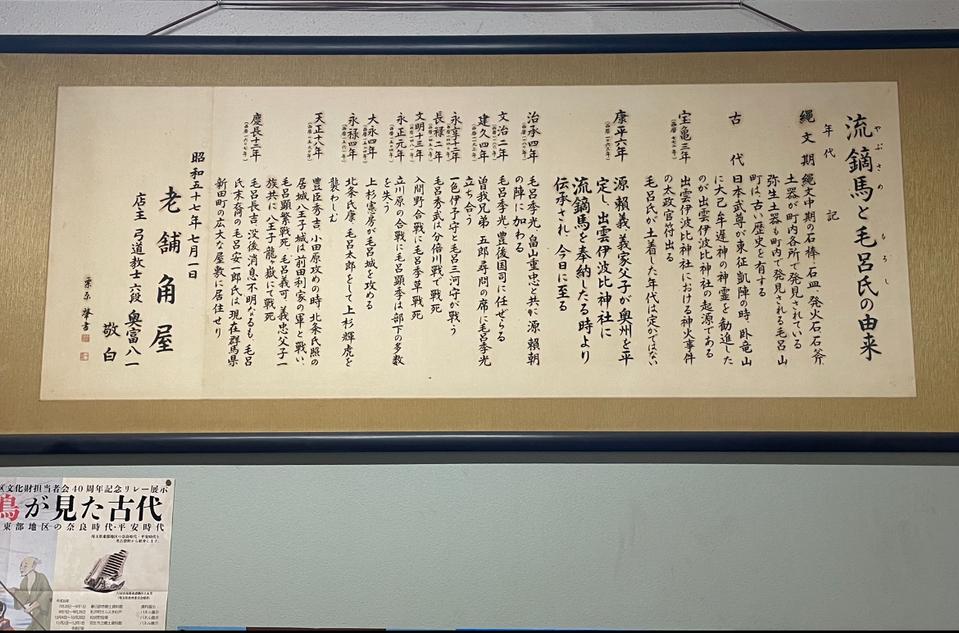 流鏑馬と毛呂氏の由来
やぶさめ
もろし
年代
記
縄文期
縄文中期の石棒・石皿・発火石・石斧、
土器が町内各所で発見されている
弥生土器も町内で発見される毛呂山
町は古い歴史を有する
古代
日本武尊が東征凱陣の時、臥竜山
に大己牟遅神の神霊を勧進した
のが出雲伊波比神社の起源である
宝亀三年
出雲伊波比神社における神火事件
の太政官符出る
毛呂氏が土着した年代は定かではない
康平六年
源頼義・義家父子が奥州を平
定し、出雲伊波比神社に
流鏑馬を奉納したる時より
伝承され、今日に至る
治承四年
毛呂季光、畠山重忠と共に源頼朝
の陣に加わる
文治二年
毛呂季光、豊後国司に任ぜらる
建久四年
曽我兄弟 五郎尋問の席に毛呂季光
立ち合う
永享十二年
一色伊予守と毛呂三河守が戦う
長禄二年
毛呂秀武は分倍川で戦死
文明十三年
入間野合戦に毛呂季草戦死
永正元年
立川原の合戦に毛呂顕季は部下の多数
を失う
大永四年
上杉憲房が毛呂城を攻める
永禄四年
北条氏康、毛呂太郎をして上杉輝虎を
襲わしむ
天正十八年
豊臣秀吉、小田原攻めの時、北条氏照の
居城八王子城は前田利家の軍と戦い、
毛呂顕繁戦死、毛呂義可、義忠父子一
族共に八王子龍ヶ嶽にて戦死
慶長十二年
毛呂長吉、没後、消息不明なるも、毛呂
氏末裔の毛呂安一郎氏は、現在群馬県
新田町の広大な屋敷に居住せり
昭和五十七年七月一日
老舗 角屋
店主 弓道教士六段 奥富八一
敬白
区文化財担当者会40周年記念リレー展示
鳥が見た古代
東部地区の奈良時代・平安時代